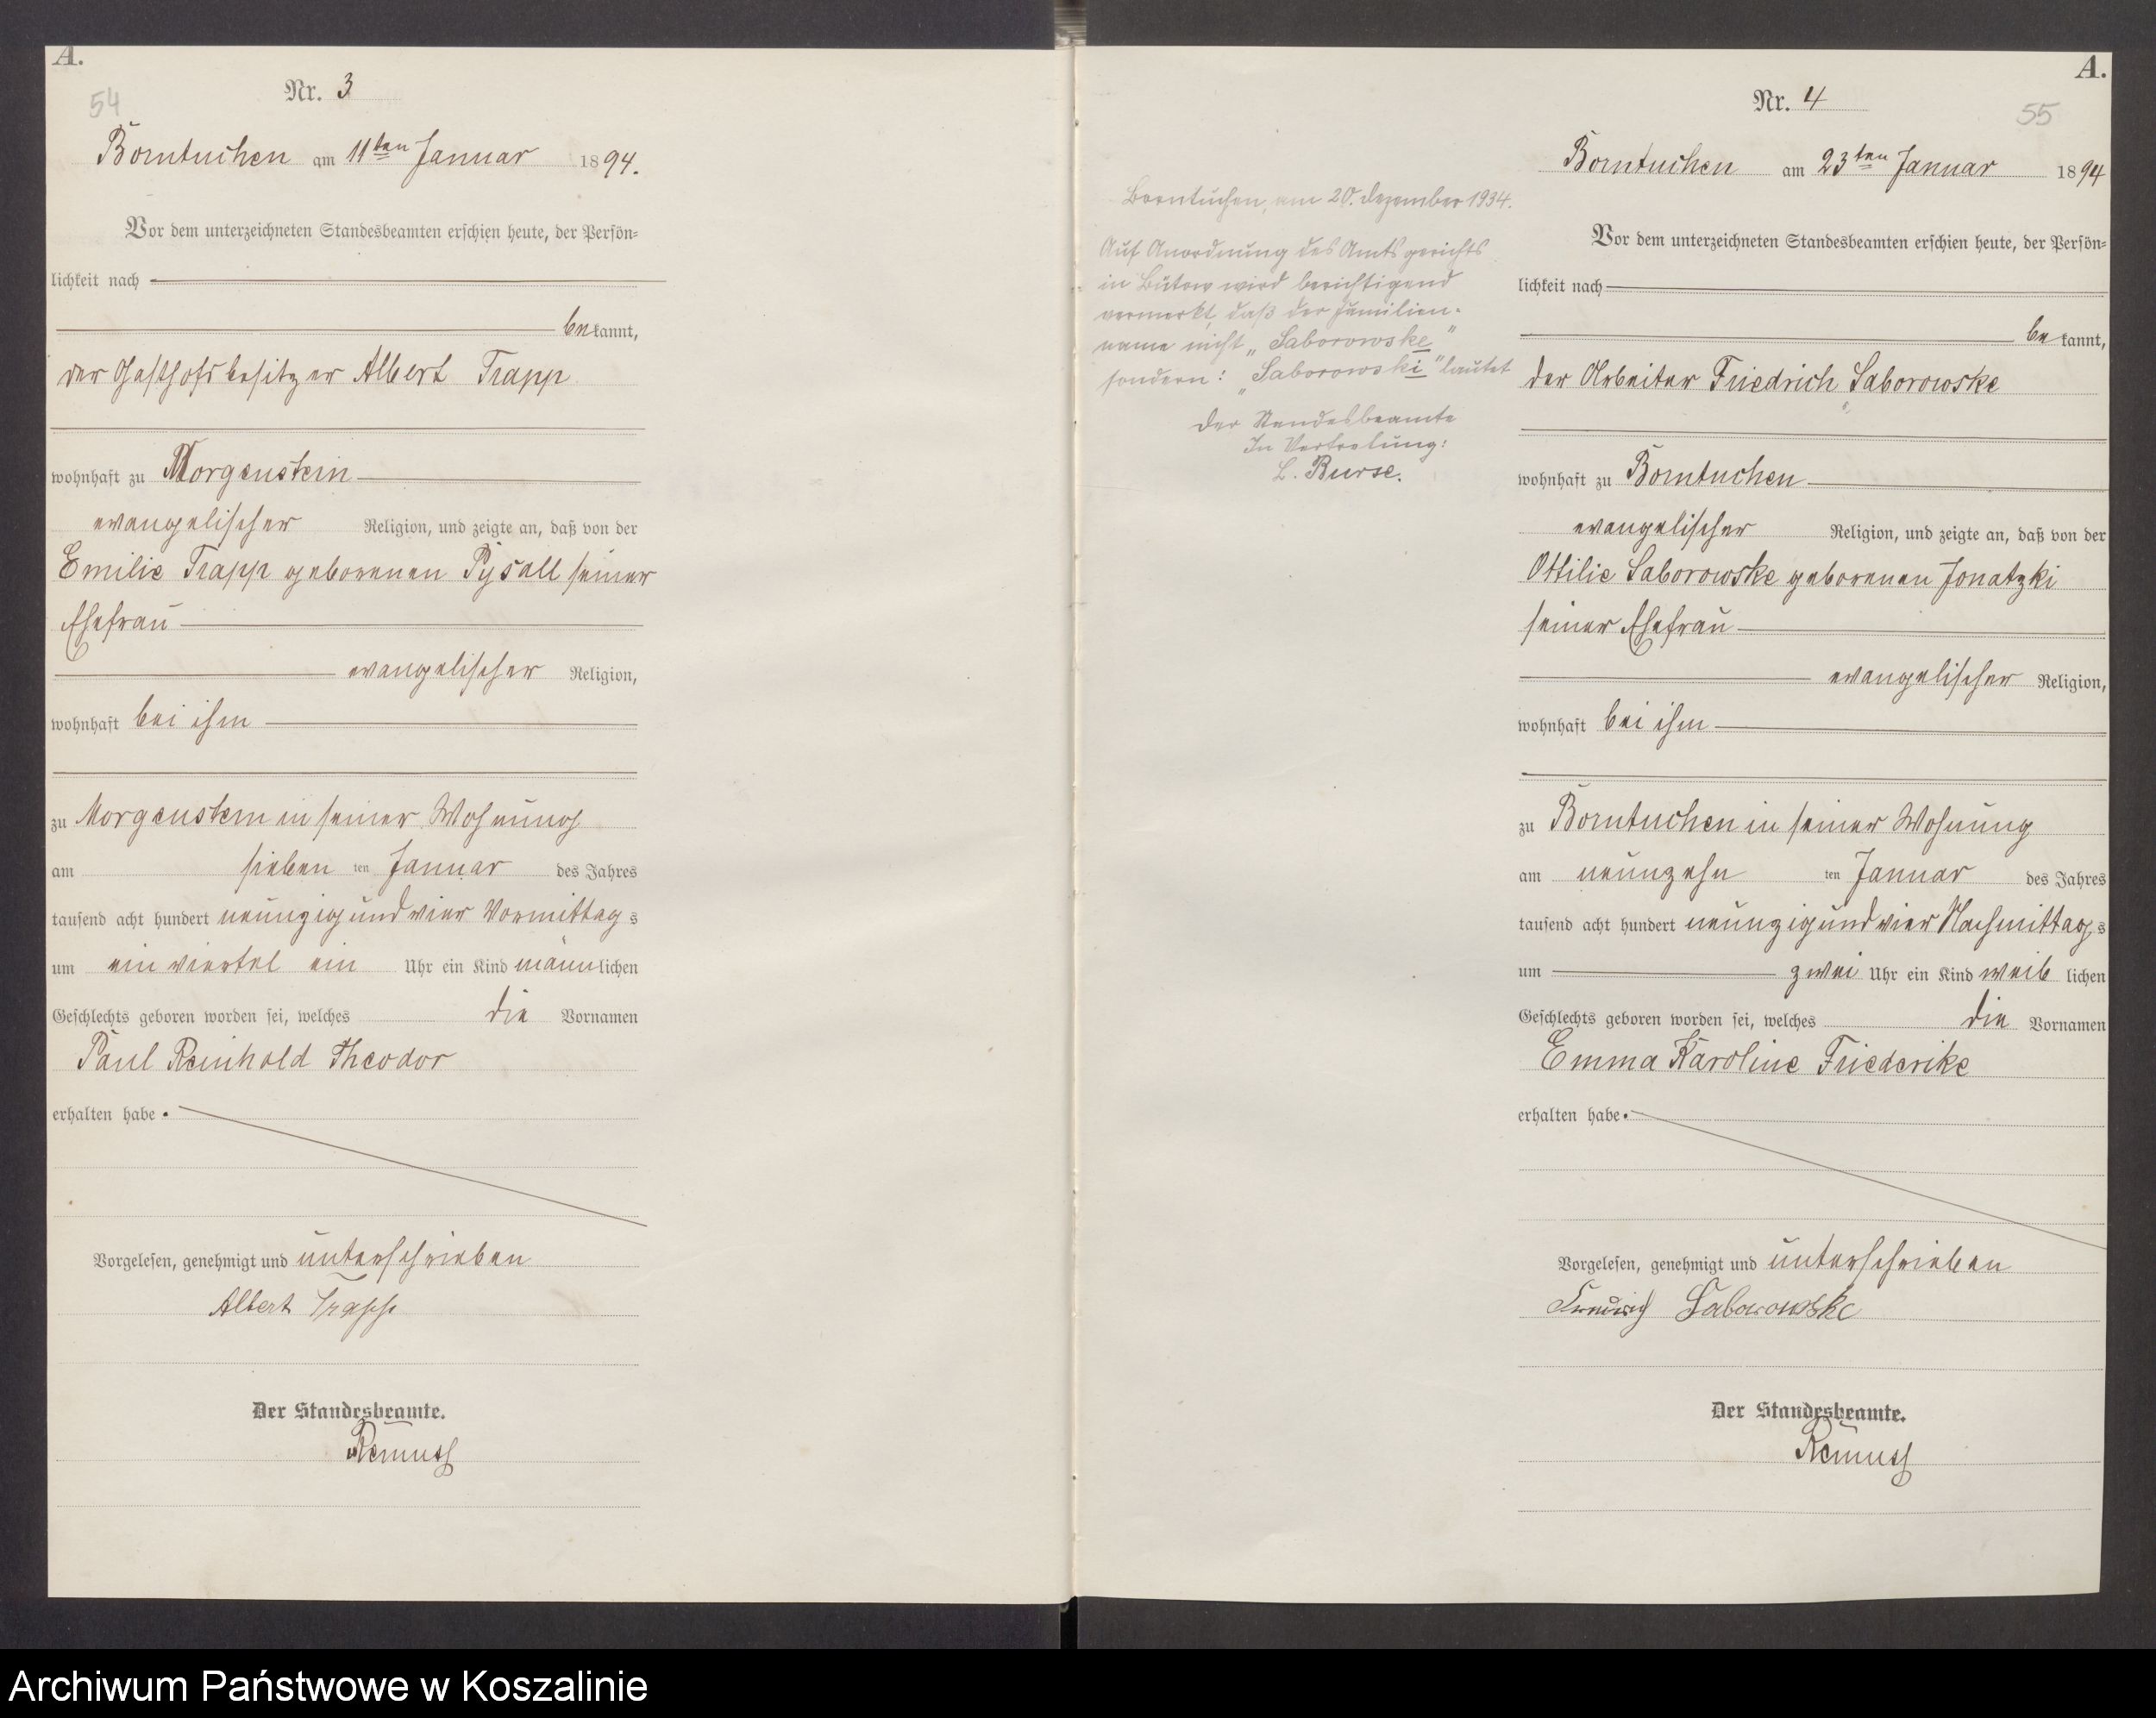 A.
54
Nr. 3
Borntuchen am 11ten Januar 1894.
Vor dem unterzeichneten Standesbeamten erschien heute, der Persön=
lichkeit nach
bekannt,
der Gasthofsbesitzer Albert Trapp
wohnhaft zu Morgenstern
evangelischer Religion, und zeigte an, daß von der
Emilie Trapp geborenen Pysall seiner
Ehefrau
evangelischer Religion,
wohnhaft bei ihm
zu Morgenstern in seiner Wohnung
am sieben ten Januar des Jahres
tausend acht hundert neunzig und vier Vormittags
um ein viertel ein Uhr ein Kind männlichen
Geschlechts geboren worden sei, welches die Vornamen
Paul Reinhold Theodor
erhalten habe.
Vorgelesen, genehmigt und unterschrieben
Albert Trapp
Der Standesbeamte.
Remus
Borntuchen, am 20. Dezember 1934.
Auf Anordnung des Amtsgerichts
in Bütow wird berichtigend
vermerkt, daß der Familien-
name nicht „Saborowske"
sondern: „Saborowski" lautet
Der Standesbeamte
In Vertretung:
L. Burse.
A.
55
Nr. 4
Borntuchen am 23ten Januar 1894
Vor dem unterzeichneten Standesbeamten erschien heute, der Persön=
lichkeit nach
bekannt,
der Arbeiter Friedrich Saborowske
wohnhaft zu Borntuchen
evangelischer Religion, und zeigte an, daß von der
Ottilie Saborowske geborenen Jonatzki
seiner Ehefrau
evangelischer Religion,
wohnhaft bei ihm
zu Borntuchen in seiner Wohnung
am neunzehn ten Januar des Jahres
tausend acht hundert neunzig und vier Nachmittags
um zwei Uhr ein Kind weiblichen
Geschlechts geboren worden sei, welches die Vornamen
Emma Karoline Friederike
erhalten habe.
Vorgelesen, genehmigt und unterschrieben
Friedrich Saborowske
Der Standesbeamte.
Remus
Archiwum Państwowe w Koszalinie